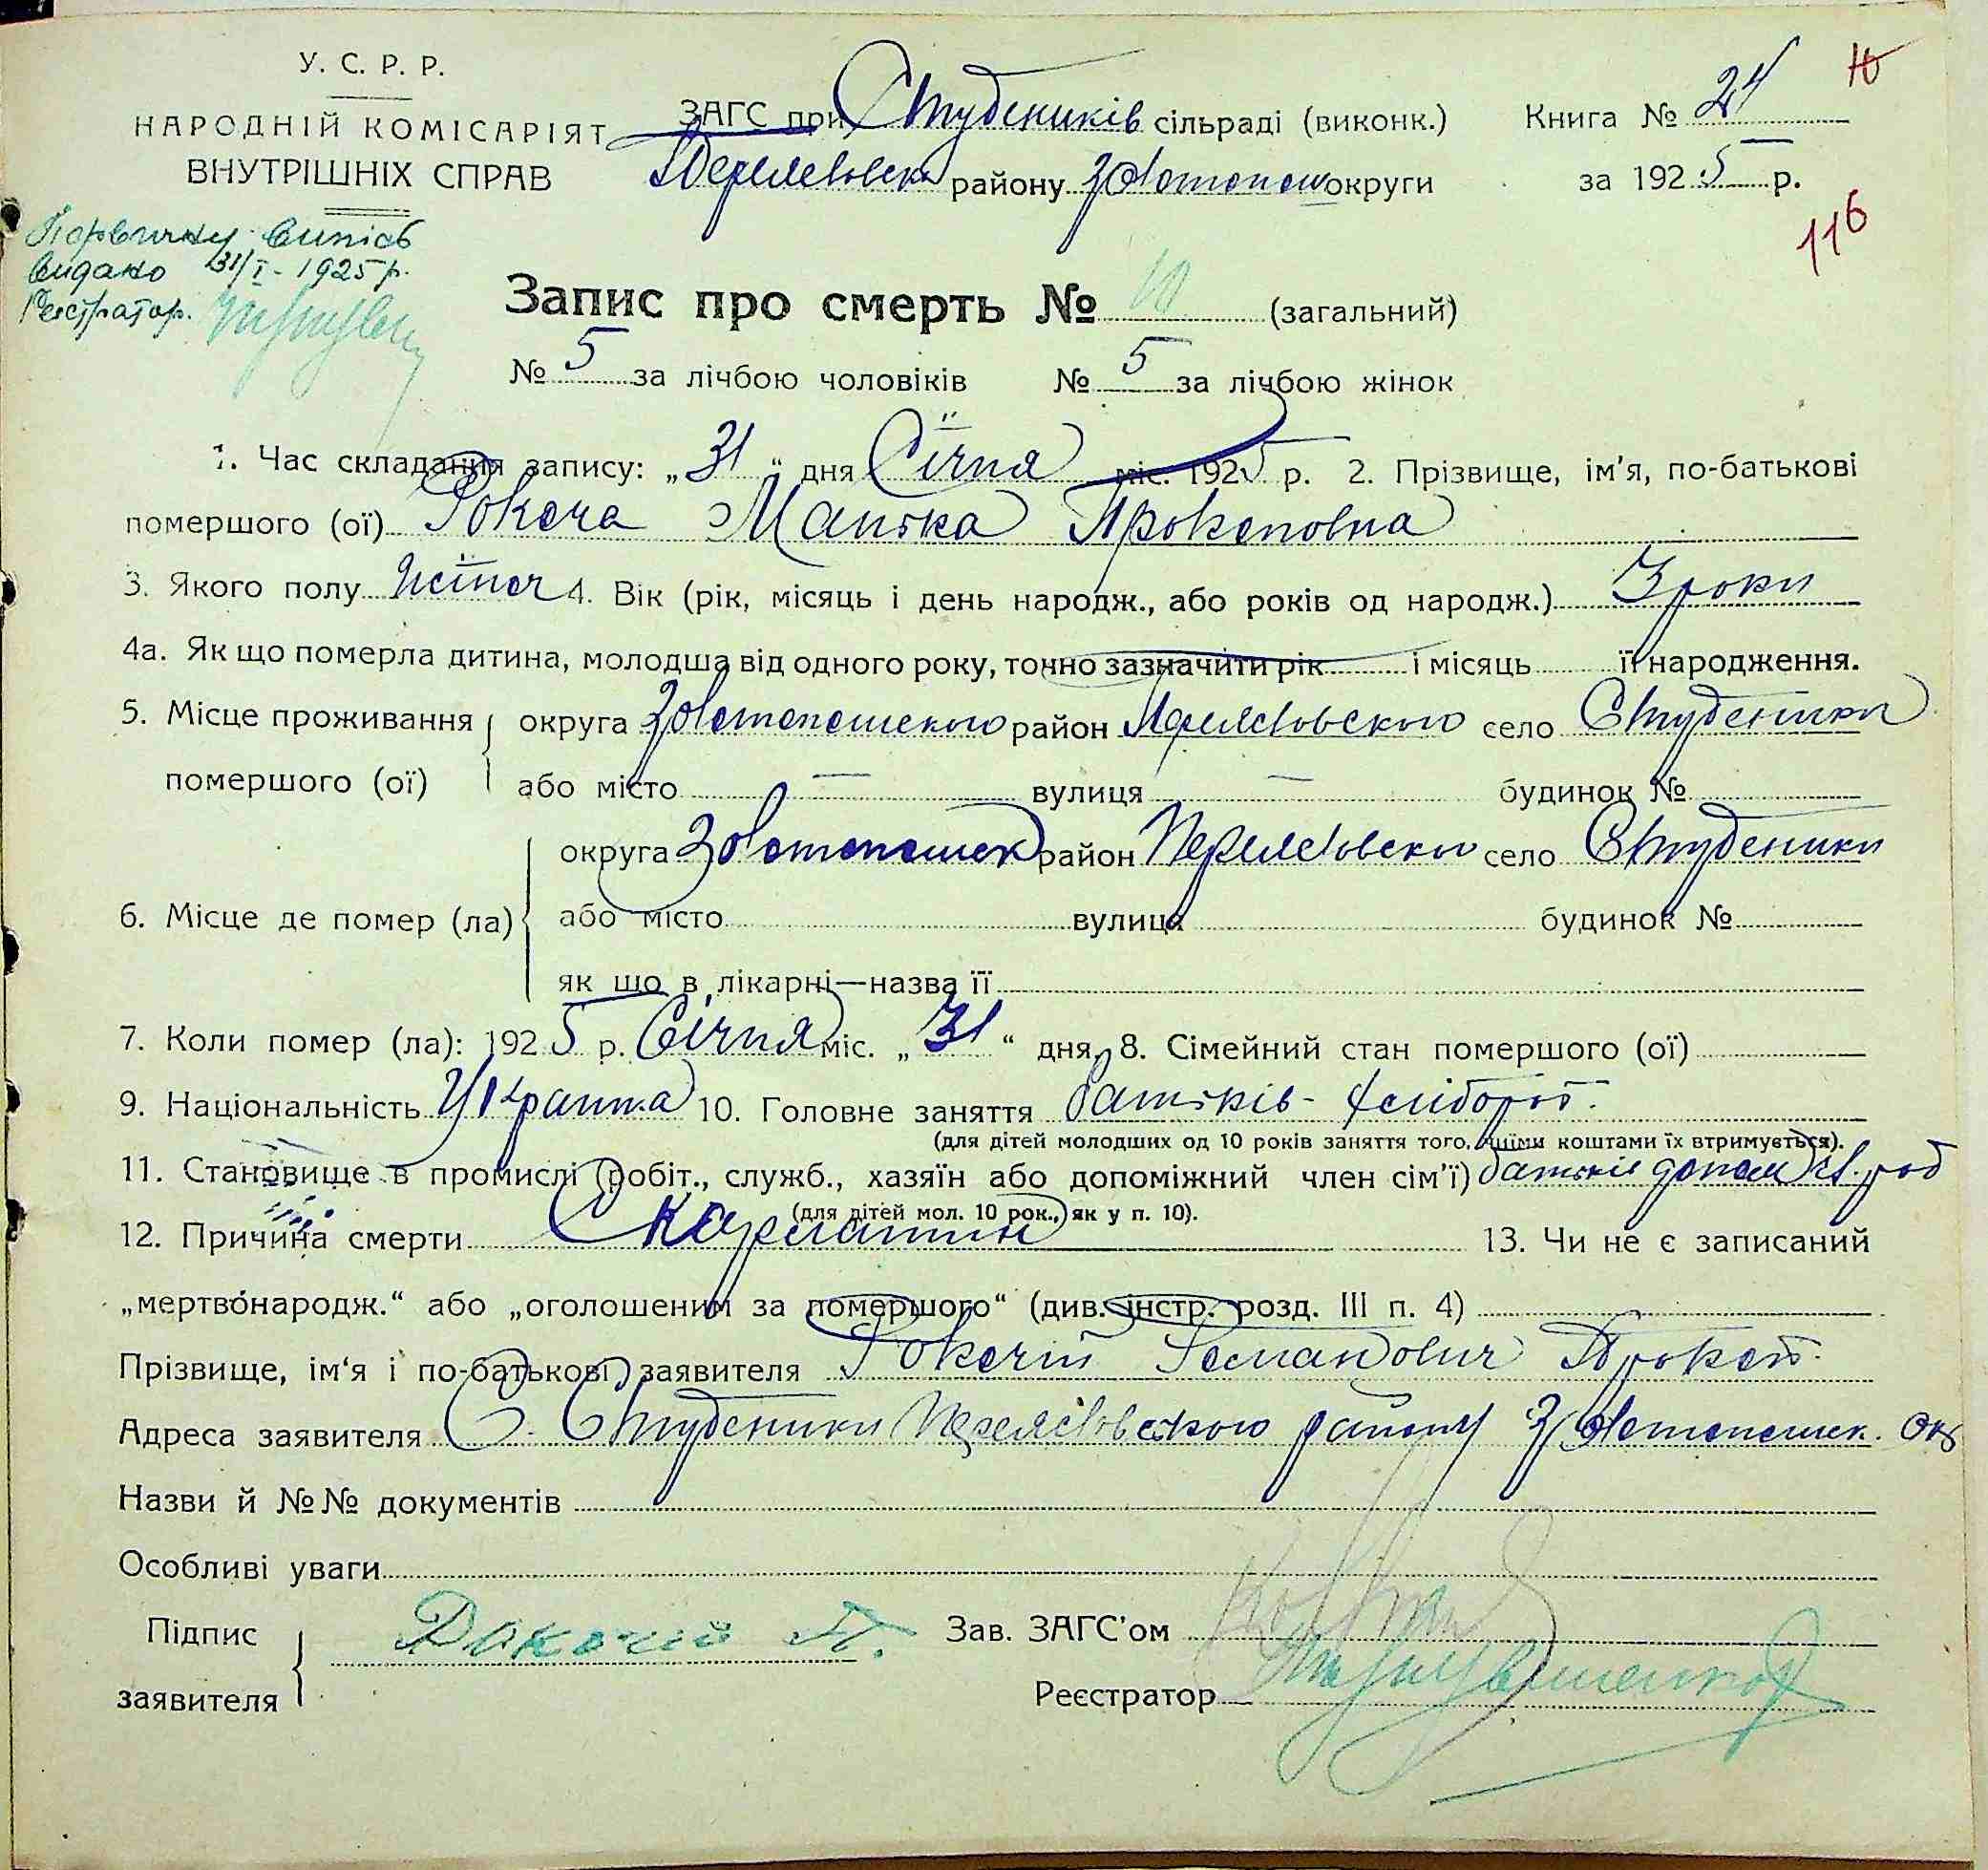 У. С. Р. Р.
НАРОДНІЙ КОМІСАРІЯТ
ВНУТРІШНІХ СПРАВ
ЗАГС при Студеників сільраді (виконк.)
району Золотонош округи
Книга № 24
за 1925 р.
10
116
Видано 31/I - 1925 р.
Реєстратор.
Запис про смерть № 10 (загальний)
№ 5 за лічбою чоловіків № 5 за лічбою жінок
1. Час складання запису: „31“ дня Січня міс. 1925 р. 2. Прізвище, ім'я, по-батькові
помершого (ої) Рокоча Прокоповна
3. Якого полу жіноч 4. Вік (рік, місяць і день народж., або років од народж.) 3 роки
4а. Як що померла дитина, молодша від одного року, точно зазначити рік і місяць її народження.
5. Місце проживання округа Золотоношского район село Студеники
помершого (ої) або місто — вулиця — будинок №
округа Золотоношск район село Студеники
6. Місце де помер (ла) або місто вулиця будинок №
як що в лікарні—назва її
7. Коли помер (ла): 1925 р. Січня міс. „31“ дня 8. Сімейний стан помершого (ої)
9. Національність Украінка 10. Головне заняття батьків - хлібороб.
(для дітей молодших од 10 років заняття того, чиїми коштами їх втримується).
11. Становище в промислі (робіт., служб., хазяїн або допоміжний член сім'ї) батьків
(для дітей мол. 10 рок., як у п. 10).
12. Причина смерти Скарлатин 13. Чи не є записаний
„мертвонародж.“ або „оголошеним за помершого“ (див. інстр. розд. III п. 4)
Прізвище, ім'я і по-батькові заявителя Рокочій Романович Прокоп.
Адреса заявителя С. Студеники району Золотоношск. Окр
Назви й №№ документів
Особливі уваги
Підпис
заявителя
Зав. ЗАГС'ом
Реєстратор